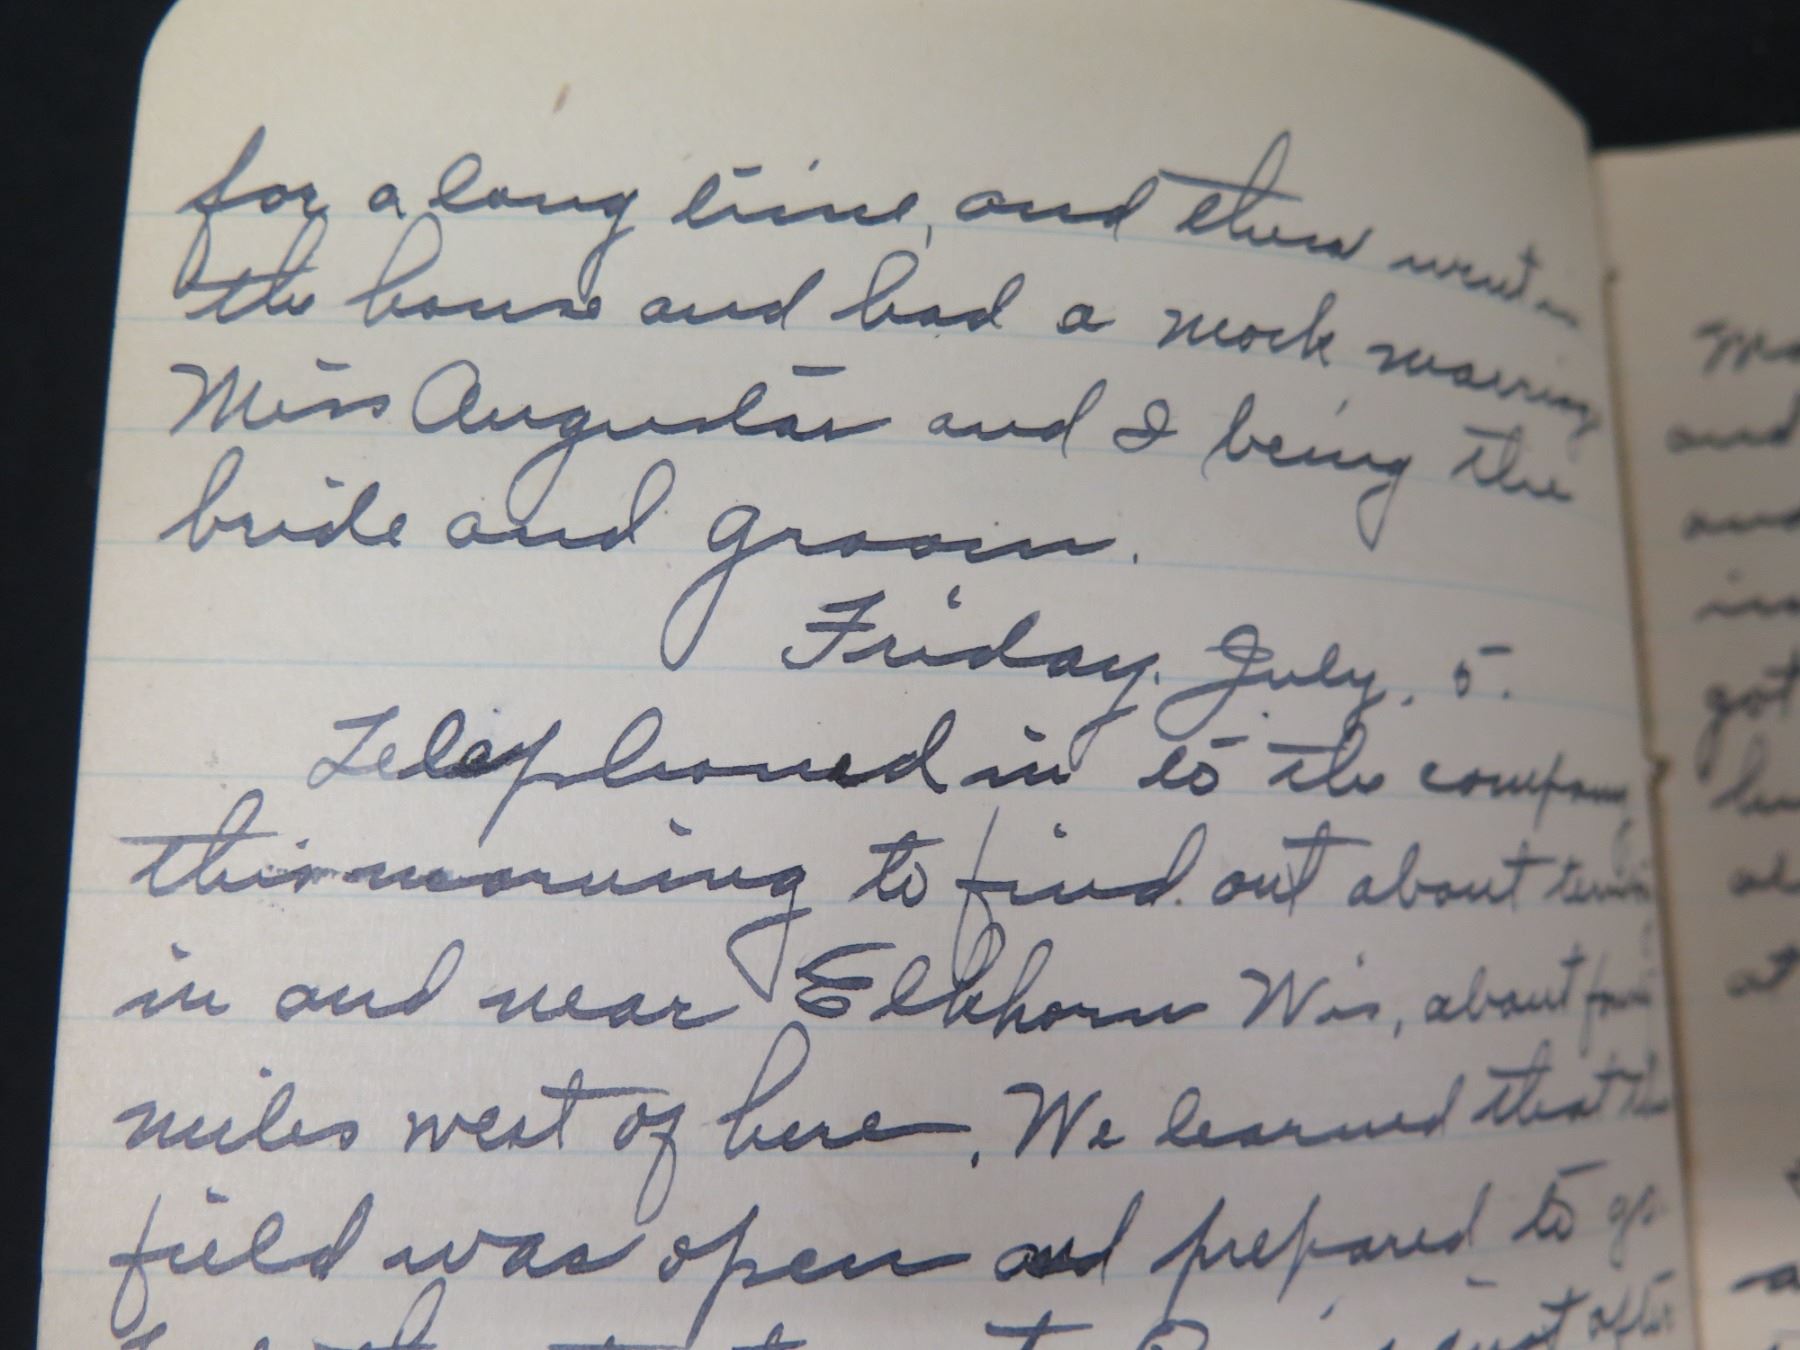 for a long time, and then went in
the house and had a mock marriage
Miss Augustas and I being the
bride and groom.
Friday. July. 5.
Telephoned in to the company
this morning to find out about
in and near Elkhorn Wis, about
miles west of here. We learned that the
field was open and prepared to go
just after
and
and
got
at